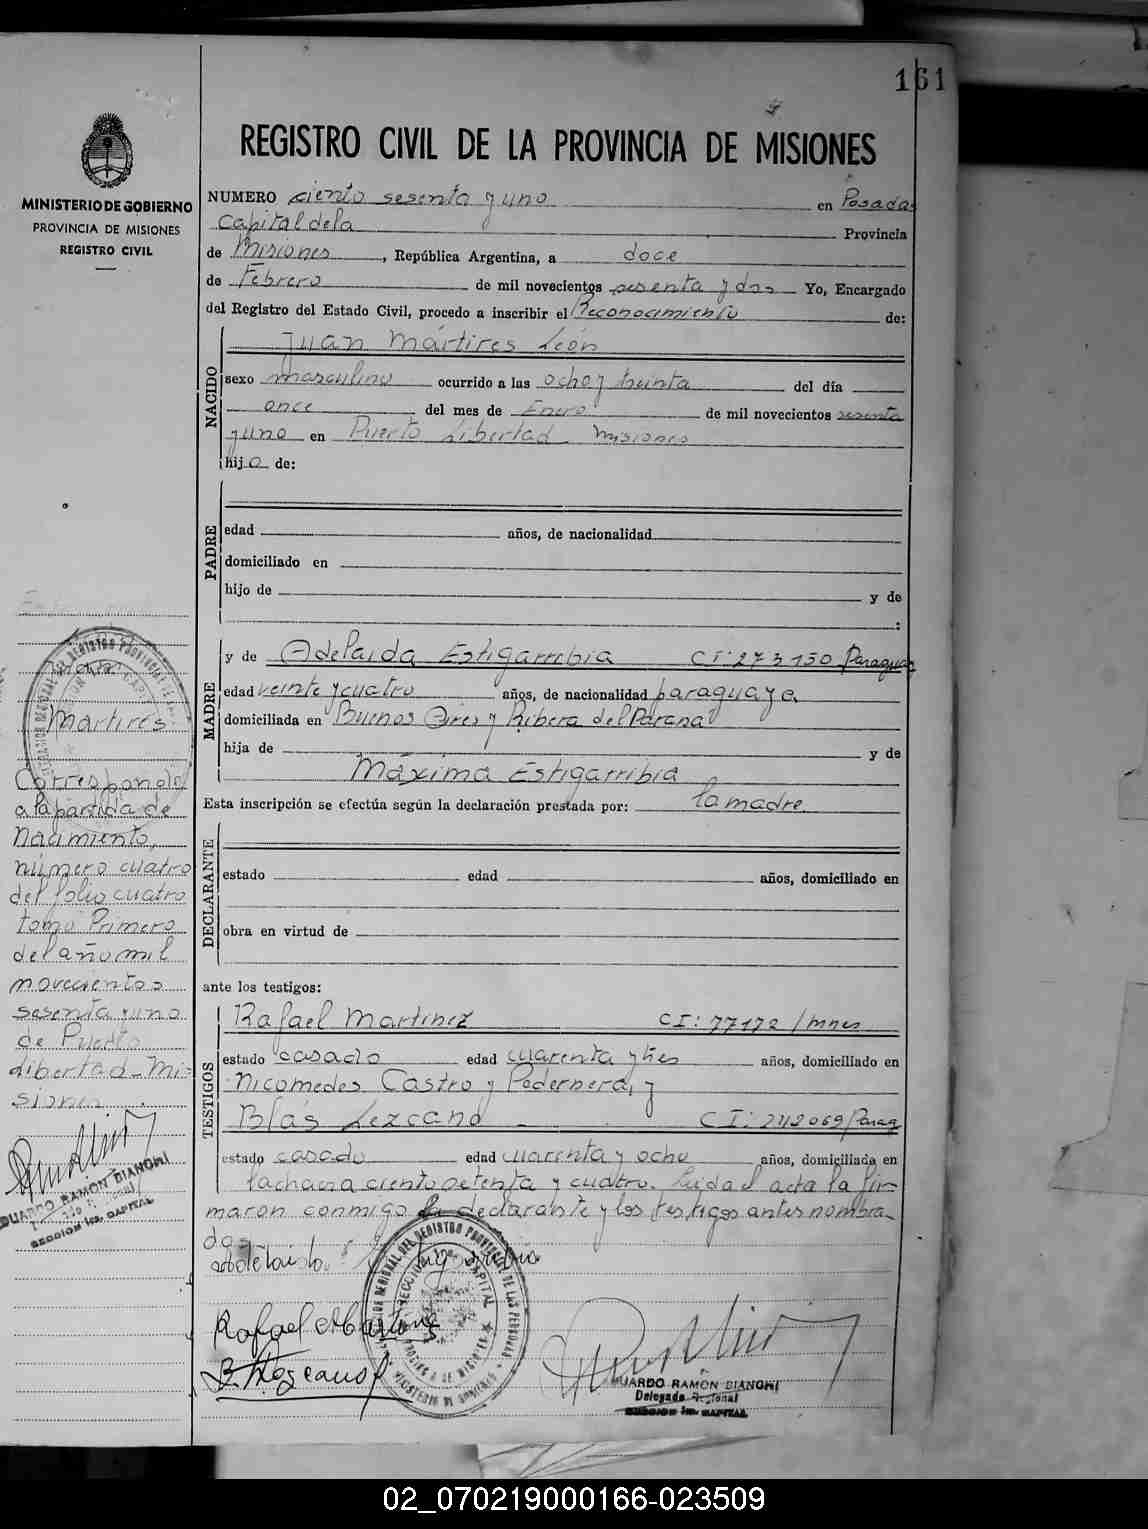 161
REGISTRO CIVIL DE LA PROVINCIA DE MISIONES
MINISTERIO DE GOBIERNO
PROVINCIA DE MISIONES
REGISTRO CIVIL
NUMERO ciento sesenta y uno en Posadas
Capital de la Provincia
de Misiones, República Argentina, a doce
de Febrero de mil novecientos sesenta y dos Yo, Encargado
del Registro del Estado Civil, procedo a inscribir el Reconocimiento de:
NACIDO
Juan Mártires León
sexo masculino ocurrido a las ocho y treinta del día
once del mes de Enero de mil novecientos sesenta
y uno en Puerto Libertad Misiones
hijo de:
PADRE
edad años, de nacionalidad
domiciliado en
hijo de y de
:
MADRE
y de Adelaida Estigarribia CI: 273150 Paraguay
edad veinte y cuatro años, de nacionalidad paraguaya
domiciliada en Buenos Aires y Ribera del Paraná
hija de y de
Máxima Estigarribia
Esta inscripción se efectúa según la declaración prestada por: la madre
DECLARANTE
estado edad años, domiciliado en
obra en virtud de
ante los testigos:
TESTIGOS
Rafael Martinez CI: 77172/mnes
estado casado edad cuarenta y tres años, domiciliado en
Nicomedes Castro y Pedernera, y
Blás Lezcano CI: 242069/Parag
estado casado edad cuarenta y ocho años, domiciliada en
Lachana ciento setenta y cuatro. Leída el acta la fir
maron conmigo la declarante y los testigos antes nombra-
dos
Adelaida
Rafael Martinez
B. Lezcano
EDUARDO RAMON BIANCHI
Delegado Regional
SECCION 1ra. CAPITAL
Juan
Martires
Corresponde
a la partida de
Nacimiento,
número cuatro
del folio cuatro
tomo Primero
del año mil
novecientos
sesenta y uno
de Puerto
Libertad-Mi
siones
EDUARDO RAMON BIANCHI
SECCION 1ra. CAPITAL
02_070219000166-023509